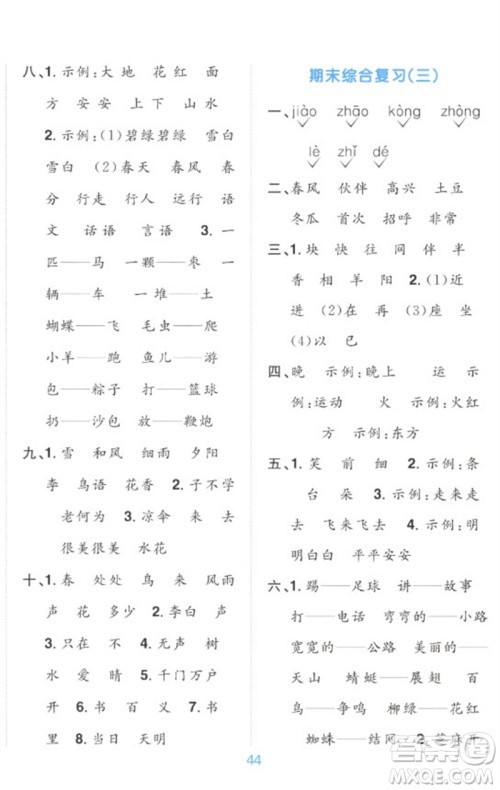 八、1. 示例:大 地 花 红 面
方 安安 上 下 山 水
2. 示例:(1)碧绿碧绿 雪白
雪白 (2)春天 春风 春
分 行走 行人 远行 语
文 话语 言语 3. 一
匹——马 一颗——枣 一
辆——车 一堆——土
蝴蝶——飞 毛虫——爬
小羊——跑 鱼儿——游
包——粽子 打——篮球
扔——沙包 放——鞭炮
九、1. 雪 和风 细雨 夕阳
李 鸟语 花香 2. 子不学
老何为 3. 凉伞 来 去
很美很美 水花
十、1. 春 处处 鸟 来 风雨
声 花 多少 2. 李白 月
光 3. 只在 4. 无声 树
水 爱 晴 5. 千门万户
开 6. 书 百 义 7. 书
里 8. 当天 天明
期末综合复习(三)
一、jiào zhāo kòng zhòng
lè zhǐ dé
二、春风 伙伴 高兴 土豆
冬瓜 首次 招呼 非常
三、1. 块 快 往 网 伴 半
香 相 羊 阳 2. (1)近
进 (2)在 再 (3)座 坐
(4)以 已
四、晚 示例:晚上 运 示
例:运动 火 示例:火红
方 示例:东方
五、1. 笑 前 细 2. 示例:条
台 朵 3. 示例:走来走
去 飞来飞去 4. 示例:
明明白白 平平安安
六、1. 踢——足球 讲——故事
打——电话 弯弯的——小路
宽宽的——公路 美丽的——
天山 蜻蜓——展翅 百
鸟——争鸣 柳绿——花红
蜘蛛——结网 2. 芝麻开
44